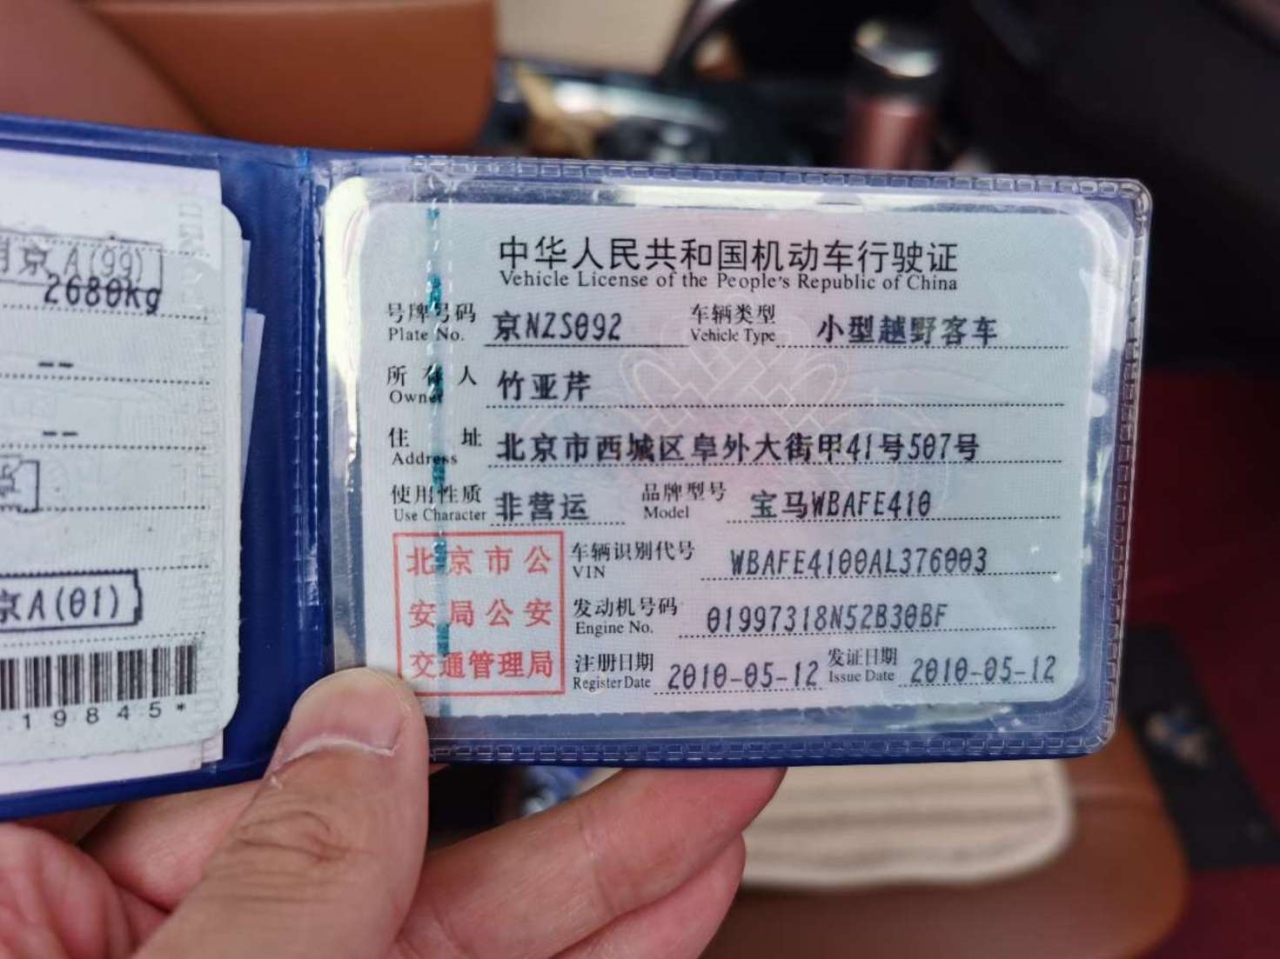 京A(99)
2680kg
--
--
京A(01)
19845*
中华人民共和国机动车行驶证
Vehicle License of the People's Republic of China
号牌号码 Plate No. 京NZS092 车辆类型 Vehicle Type 小型越野客车
所有人 Owner 竹亚芹
住址 Address 北京市西城区阜外大街甲41号507号
使用性质 Use Character 非营运 品牌型号 Model 宝马WBAFE410
北京市公安局公安交通管理局
车辆识别代号 VIN WBAFE4100AL376003
发动机号码 Engine No. 01997318N52B30BF
注册日期 Register Date 2010-05-12 发证日期 Issue Date 2010-05-12